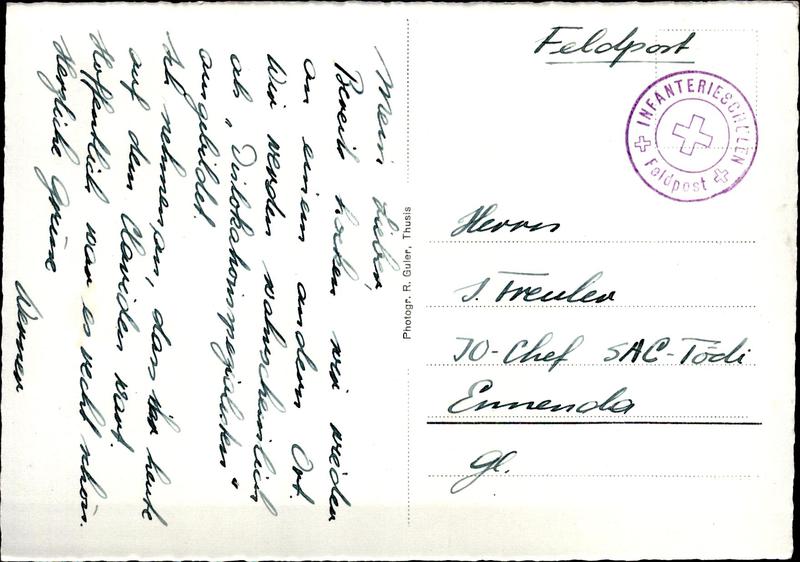 Mein Lieber,
Bereits hocken wir wieder
an einem andern Ort.
Wir werden wahrscheinlich
als „Dislokationsspezialisten"
ausgebildet.
Ich nehme an, dass ihr heute
auf dem Clariden wart.
Hoffentlich war es recht schön.
Herzliche Grüsse
Werner
Photogr. R. Guler, Thusis
Feldpost
INFANTERIESCHULEN
Feldpost
Herrn
J. Freuler
JO-Chef SAC-Tödi
Ennenda
Gl.